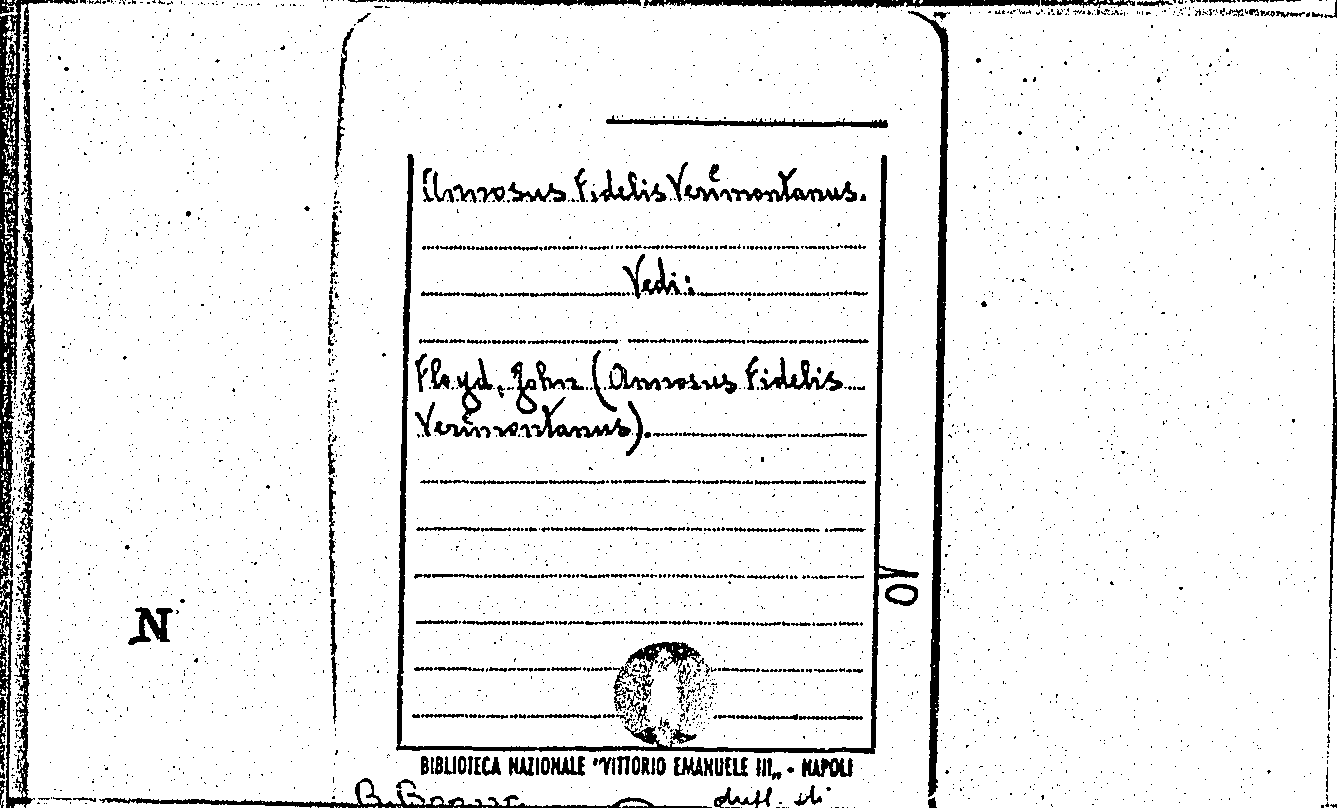 Annosus Fidelis Verimontanus.
Vedi:
Floyd, John (Annosus Fidelis
Verimontanus).
10
N
BIBLIOTECA NAZIONALE "VITTORIO EMANUELE III„ - NAPOLI